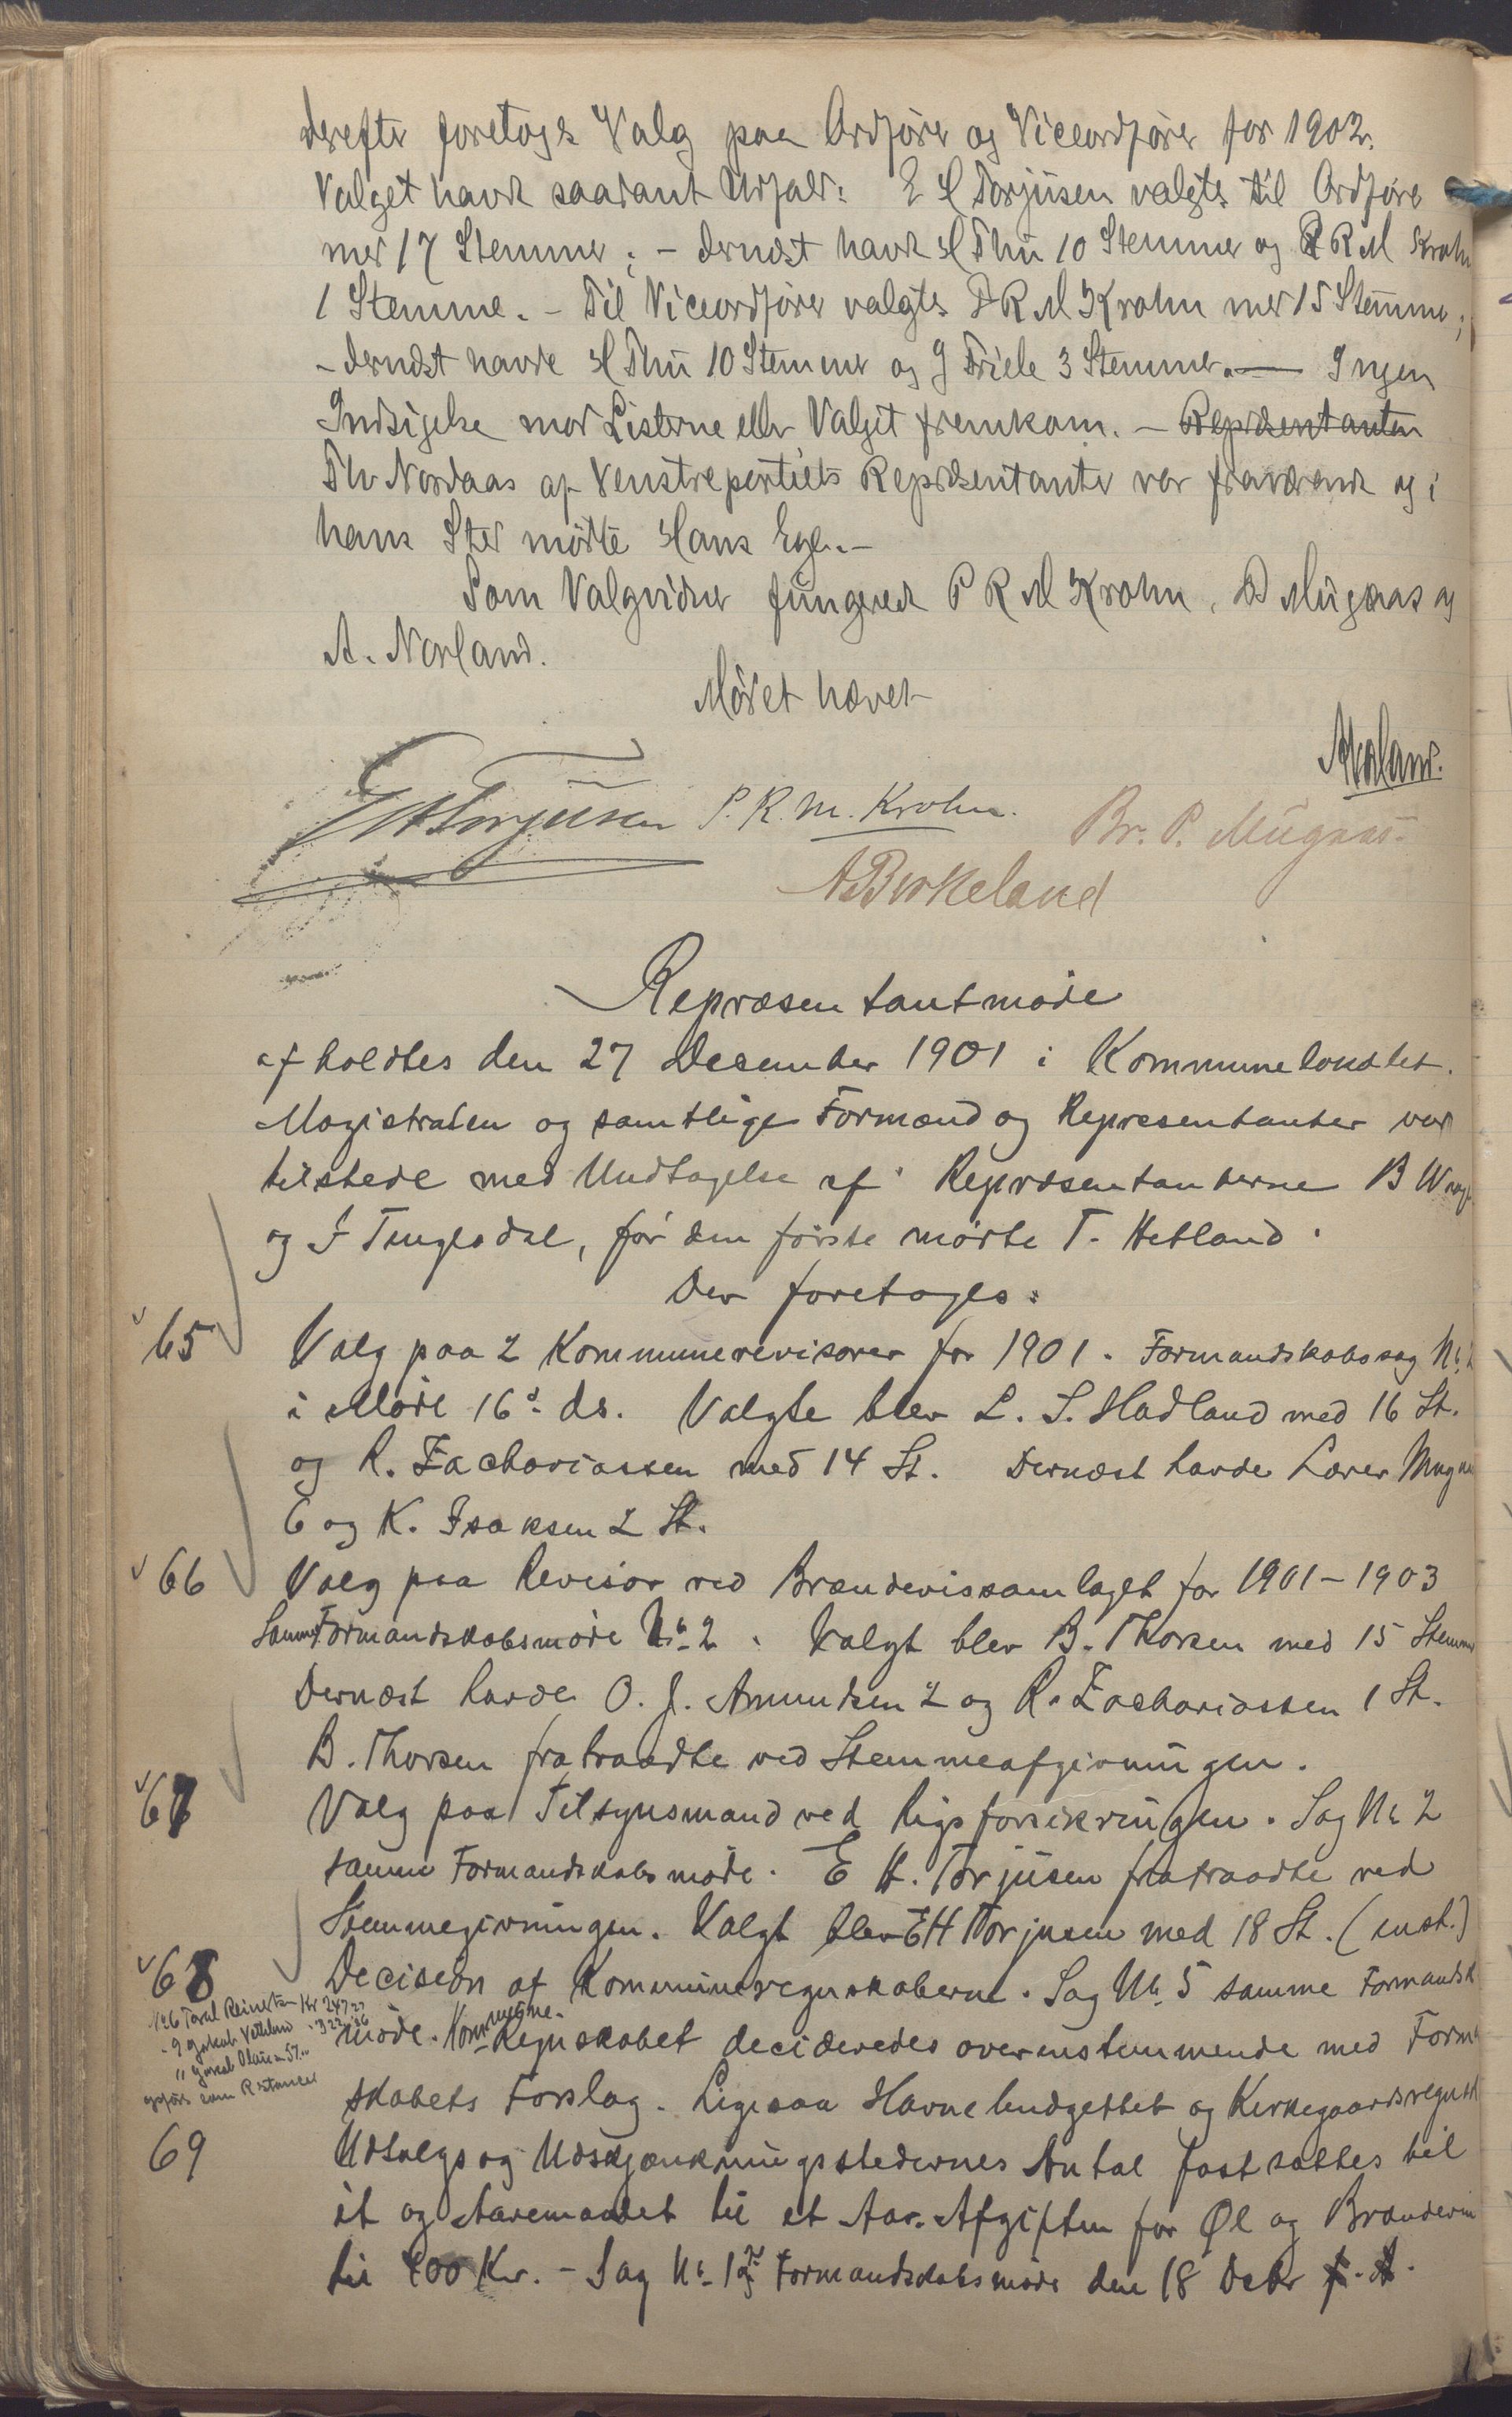 derefter foretoges Valg paa Ordfører og Viceordfører for 1902.
Valget havde saadant Udfald: E H Torjusen valgtes til Ordfører
med 17 Stemmer; - dernæst havde H Thu 10 Stemmer og P R M Krohn
1 Stemme. - Til Viceordfører valgtes P R M Krohn med 15 Stemmer;
- dernæst havde H Thu 10 Stemmer og J Friele 3 Stemmer. — Ingen
Indsigelse mod Listerne eller Valget fremkom. - Repræsentanten
Th Nordaas af Venstrepartiets Repræsentanter var fraværende og i
hans Sted mødte Hans Ege. -
Som Valgvidner fungerede P R M Krohn, Mugaas og
A. Norland.
Mødet hævet
E H Torjusen P. R. M. Krohn. Br. P. Mugaas.
A Birkeland
Repræsentantmøde
afholdtes den 27 December 1901 i Kommunelokalet.
Magistraten og samtlige Formænd og Repræsentanter var
tilstede med Undtagelse af Repræsentanterne B
og I Tengesdal, før den første mødte T. Hetland.
Der foretoges:
65 Valg paa 2 Kommunerevisorer for 1901. Formandskabssag No.
i Møde 16d. ds. Valgte blev L. S. Hadland med 16 St.
og R. Zachariassen med 14 St. Dernæst havde Lærer Mugaas
6 og K. Isaksen 2 St.
66 Valg paa Revisor ved Brændevinssamlaget for 1901-1903
Samme Formandskabsmøde No. 2. Valgt blev B. Thorsen med 15 Stemmer
Dernæst havde O. J. Amundsen 2 og R. Zachariassen 1 St.
B. Thorsen fratraadte ved Stemmeafgivningen.
67 Valg paa Tilsynsmand ved Rigsforsikringen. Sag No 2
samme Formandskabsmøde. E H. Torjusen fratraadte ved
Stemmegivningen. Valgt blev E H Torjusen med 18 St. (enst.)
68 Decision af Kommuneregnskaberne. Sag No. 5 samme Formandsk
No 6 Toral Reinertsen Kr 247 27
- 9 Jakob Vetteland - 322.26
" Jakob Olsen - 57.
opføres som Restancer
møde. Kommune-Regnskabet decideredes overensstemmende med Formand
skabets Forslag. Ligesaa Havnebudgettet og Kirkegaardsregnsk
69 Udsalgs og Udskjænkningsstedernes Antal fastsattes til
it og Aaremaalet til et Aar. Afgiften for Øl og Brændevin
til 400 Kr. - Sag No. 1 Formandskabsmøde den 18 Debr f. A.